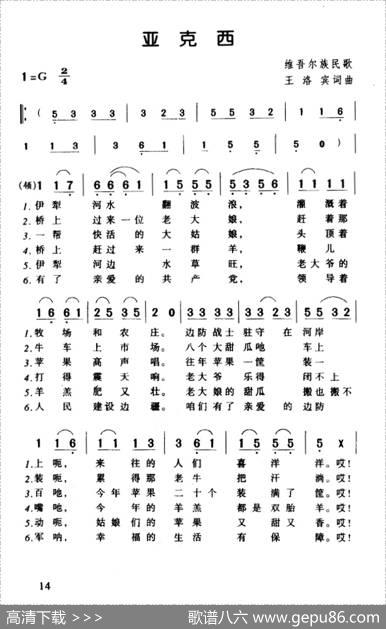 亚克西
1=G 2/4
维吾尔族民歌
王洛宾词曲
( 5 3 3 | 3 2 3 | 3 2 1 | 5 5 3 2 | 1 1 6 |
1 1 3 | 3 6 1 | 1 5 5 5 | 5 0 )
(领) 1 1 7 | 6 6 6 1 | 1 5 5 5 | 5 3 5 6 | 1 1 1
1.伊犁 河水 翻波浪, 灌溉着
2.桥上 过来一位 老大娘, 赶着那
3.一帮 快活的 大姑娘, 头顶着
4.桥上 赶过来 一群羊, 鞭儿
5.伊犁 河边 水草旺, 老大爷的
6.有了 亲爱的 共产党, 领导着
1 6 6 1 | 5 3 5 | 2 0 | 3 3 3 3 | 3 3 3 2 3
1.牧场 和农 庄。 边防战士 驻守在河岸
2.牛车 上市 场。 八个大甜瓜吔 车上
3.苹果 高声 唱。 往年苹果一筐 装一
4.打得 震天 响。 老大爷乐得 闭不上
5.羊羔 肥又 壮。 老大娘的甜瓜 搬也搬不
6.人民 建设边 疆。 咱们有了亲爱的边防
1 1 6 | 1 1 1 3 | 3 6 1 | 1 5 5 5 | 5 X
1.上呃, 来往的人们 喜洋洋。哎!
2.装呃, 累得那老牛 把汗淌。哎!
3.百吔, 今年苹果二十个 装满了筐。哎!
4.嘴吔, 今年的羊羔 都是双胎羊。哎!
5.动呃, 姑娘们的苹果 又甜又香。哎!
6.军呐, 幸福的生活 有保障。哎!
14
高清下载 >>>
歌谱八六 www.gepu86.com